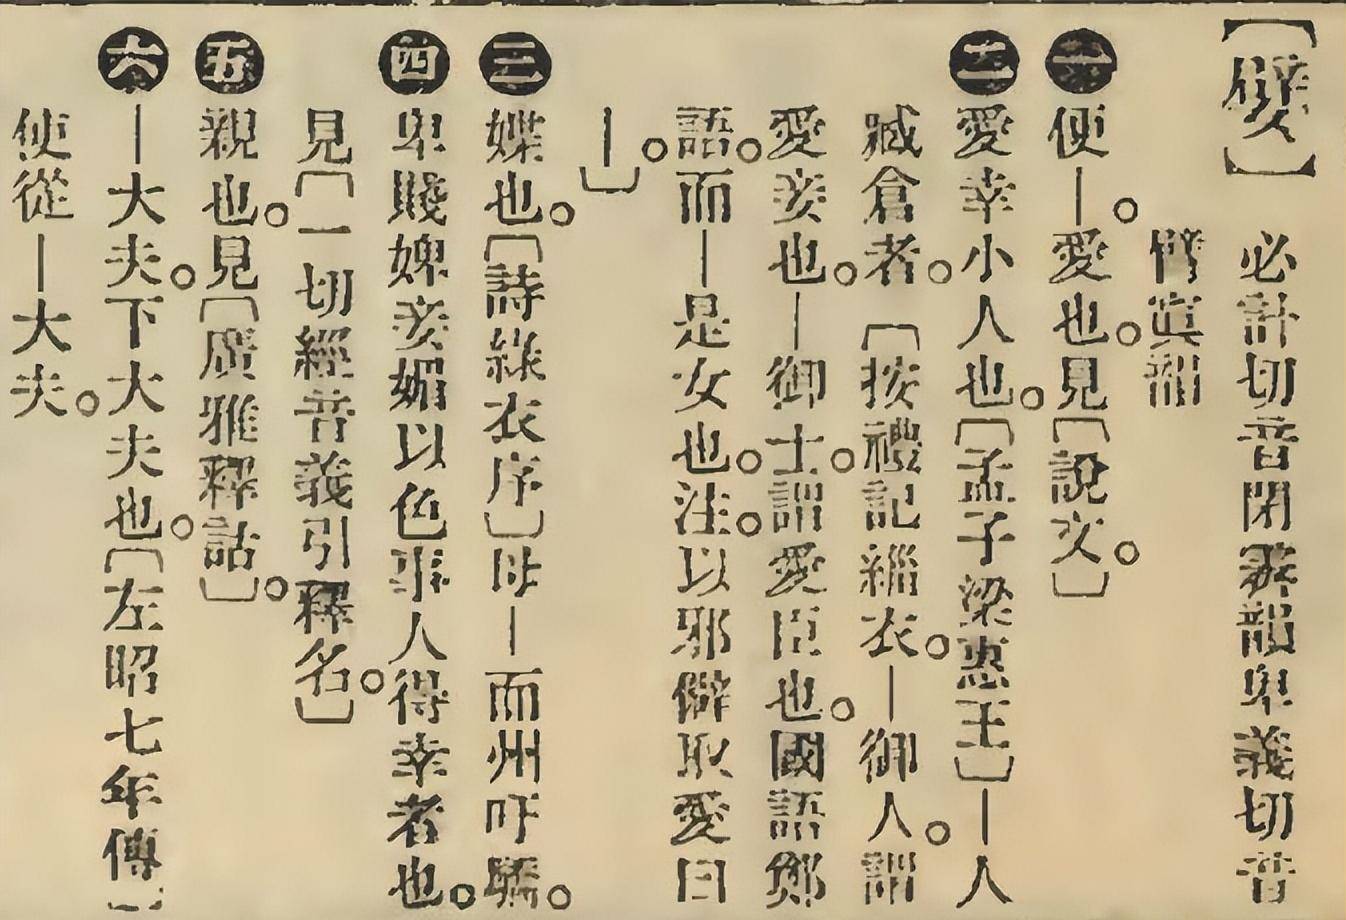 【嬖】必計切音閉霽韻卑義切音
臂寘韻
㊀便｜。愛也。見［說文］。
㊁愛幸小人也。［孟子梁惠王］｜人
臧倉者。［按禮記緇衣。｜御人。謂
愛妾也。｜御士。謂愛臣也。國語鄭
語。而｜是女也。注。以邪僻取愛曰
｜。］
㊂媟也。［詩綠衣序］母｜而州吁驕。
㊃卑賤婢妾媚以色事人得幸者也。
見［一切經音義引釋名］。
㊄親也。見［廣雅釋詁］。
㊅｜大夫。下大夫也。［左昭七年傳］
使從｜大夫。